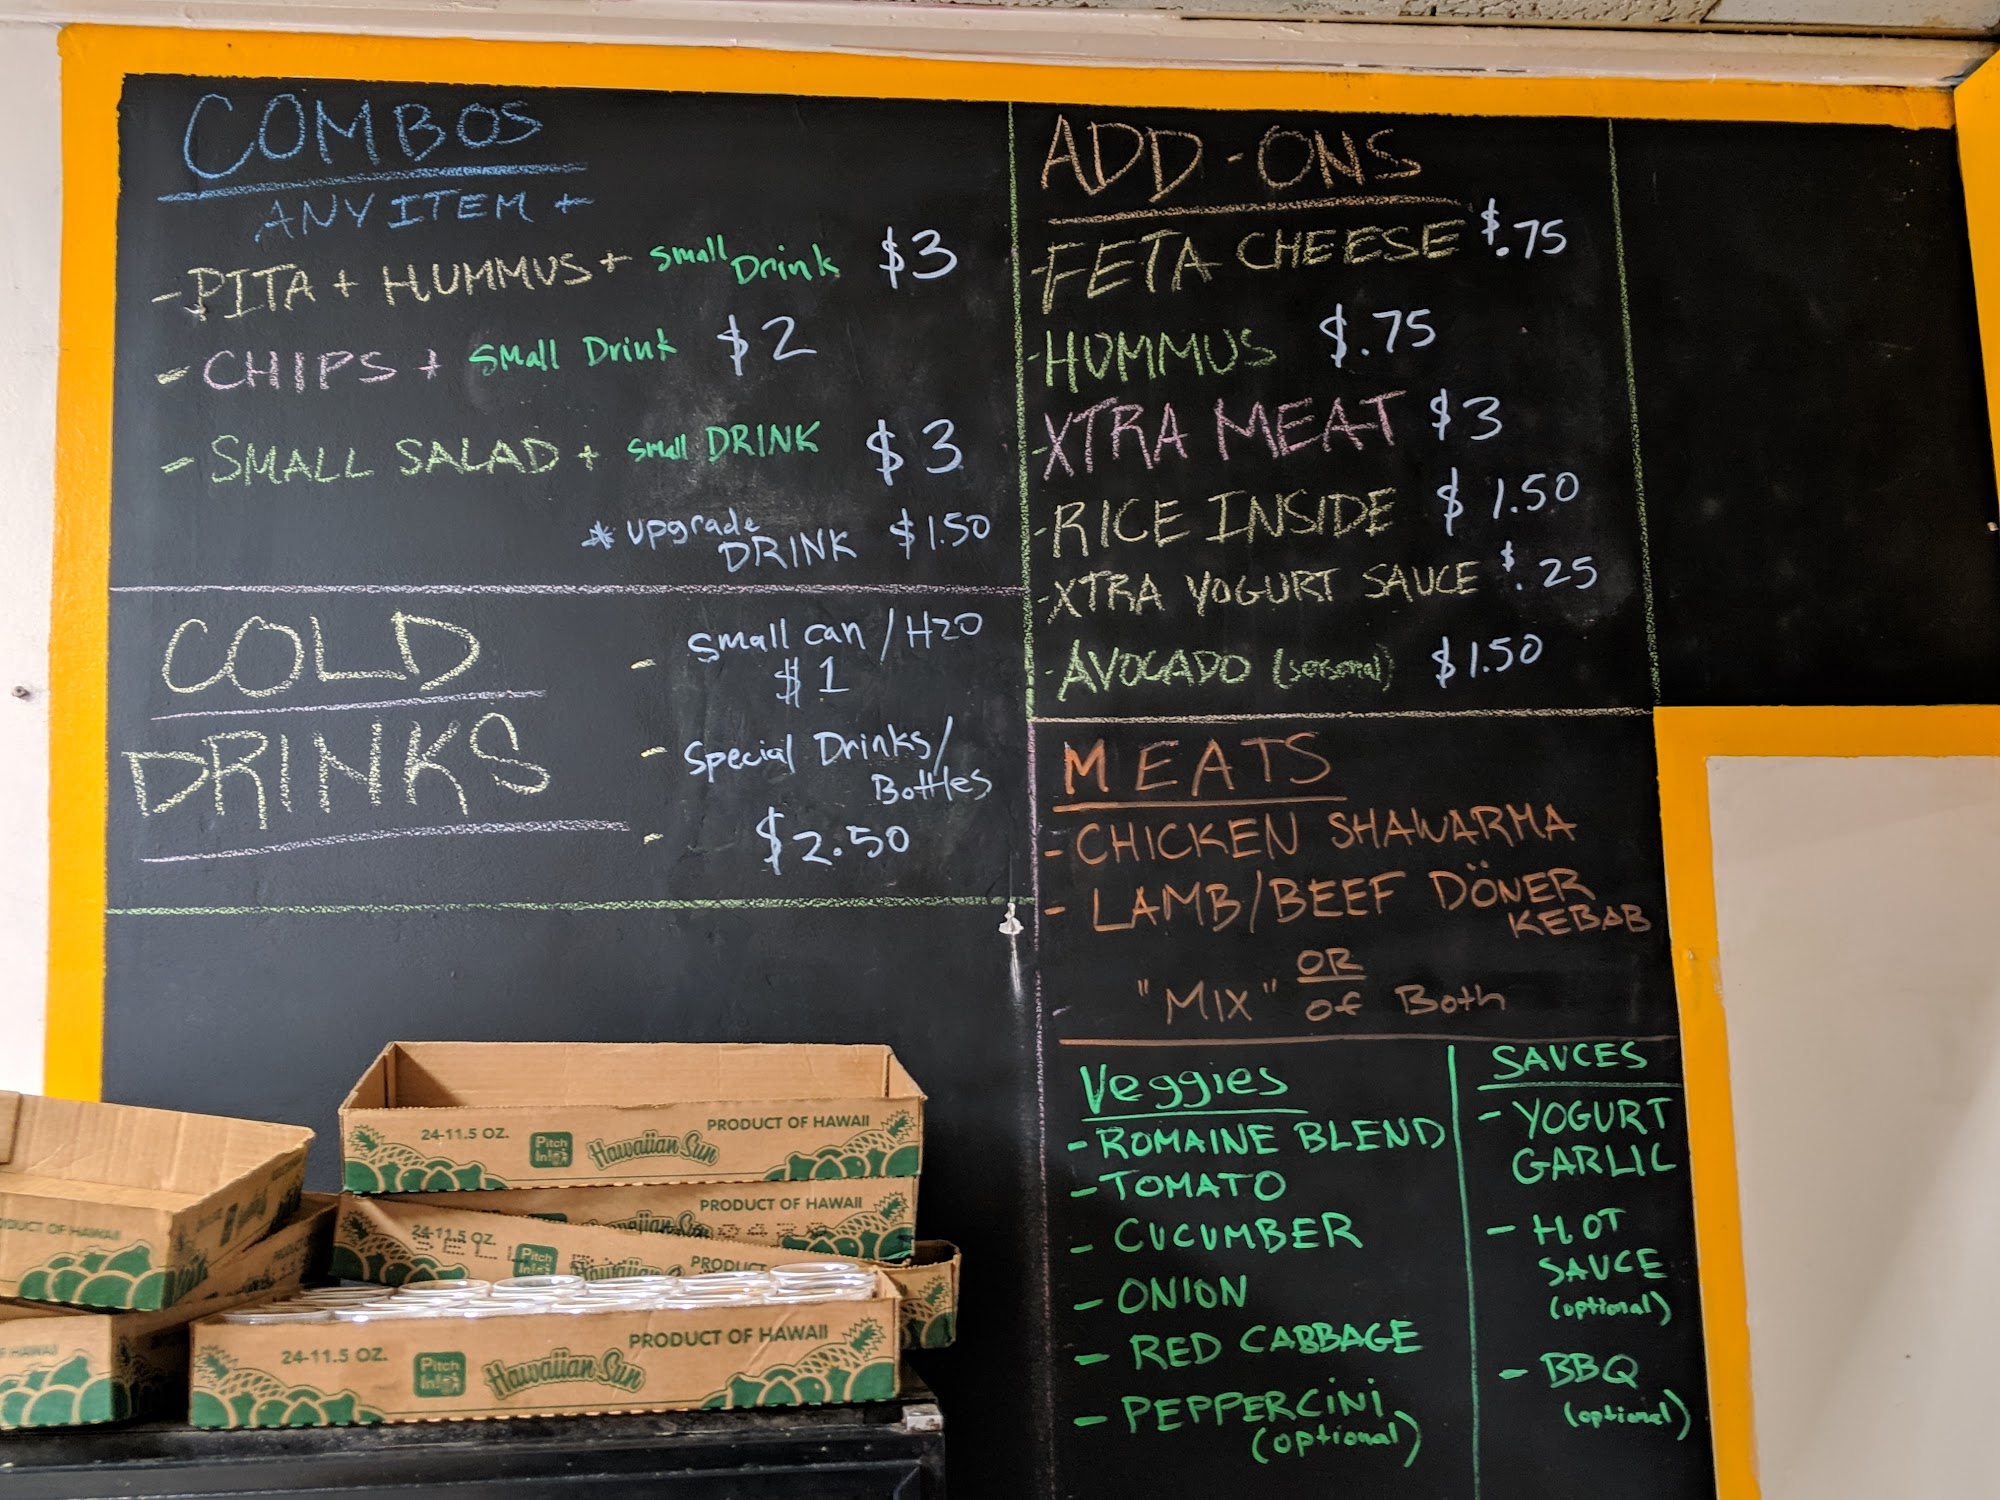 COMBOS
ANY ITEM +
- PITA + HUMMUS + small Drink $3
- CHIPS + Small Drink $2
- SMALL SALAD + Small DRINK $3
* upgrade DRINK $1.50
COLD
DRINKS
- Small can / H2O
$1
- Special Drinks/
Bottles
- $2.50
ADD-ONS
- FETA CHEESE $.75
- HUMMUS $.75
XTRA MEAT $3
- RICE INSIDE $1.50
- XTRA YOGURT SAUCE $.25
- AVOCADO (seasonal) $1.50
MEATS
- CHICKEN SHAWARMA
- LAMB/BEEF DÖNER
KEBAB
OR
- "MIX" of Both
Veggies
- ROMAINE BLEND
- TOMATO
- CUCUMBER
- ONION
- RED CABBAGE
- PEPPERCiNi
(optional)
SAUCES
- YOGURT
GARLIC
- HOT
SAUCE
(optional)
- BBQ
(optional)
24-11.5 OZ. Pitch In! Hawaiian Sun PRODUCT OF HAWAII
PRODUCT OF HAWAII
24-11.5 OZ. Pitch In! Hawaiian PRODUCT
24-11.5 OZ. Pitch In! Hawaiian Sun PRODUCT OF HAWAII